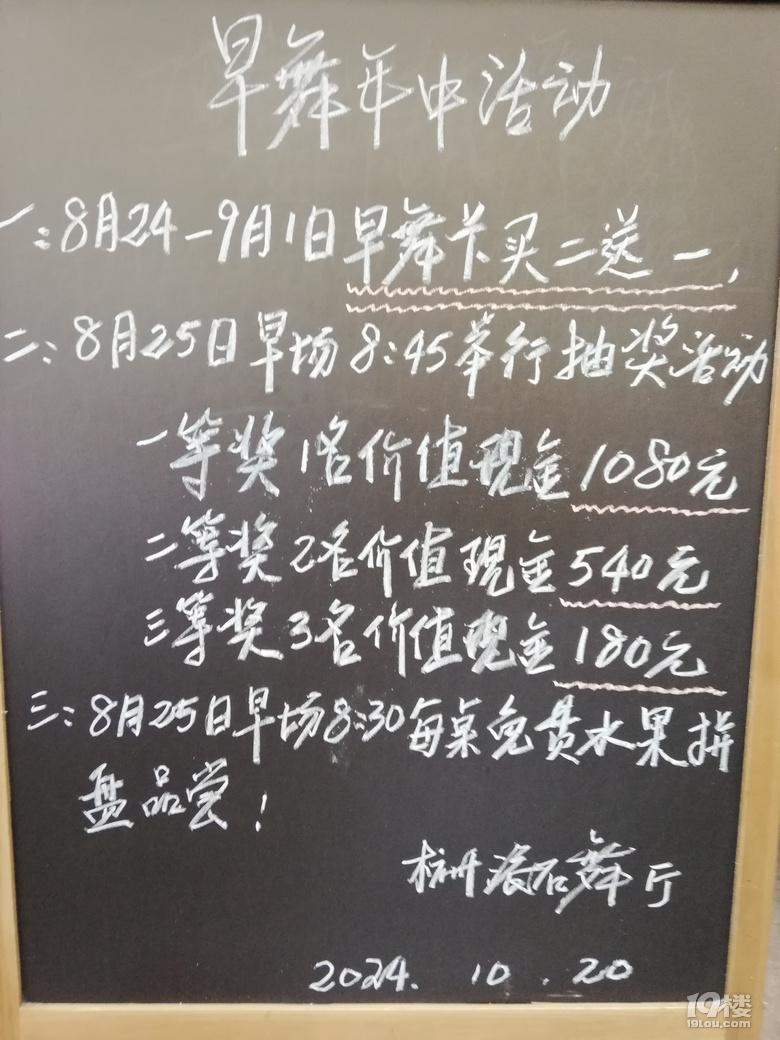 早舞年中活动
一:8月24-9月1日早舞卡买二送一,
二:8月25日早场8:45举行抽奖活动
一等奖1名价值现金1080元
二等奖2名价值现金540元
三等奖3名价值现金180元
三:8月25日早场8:30每桌免费水果拼
盘品尝!
杭州滚石舞厅
2024.10.20
19楼
19lou.com